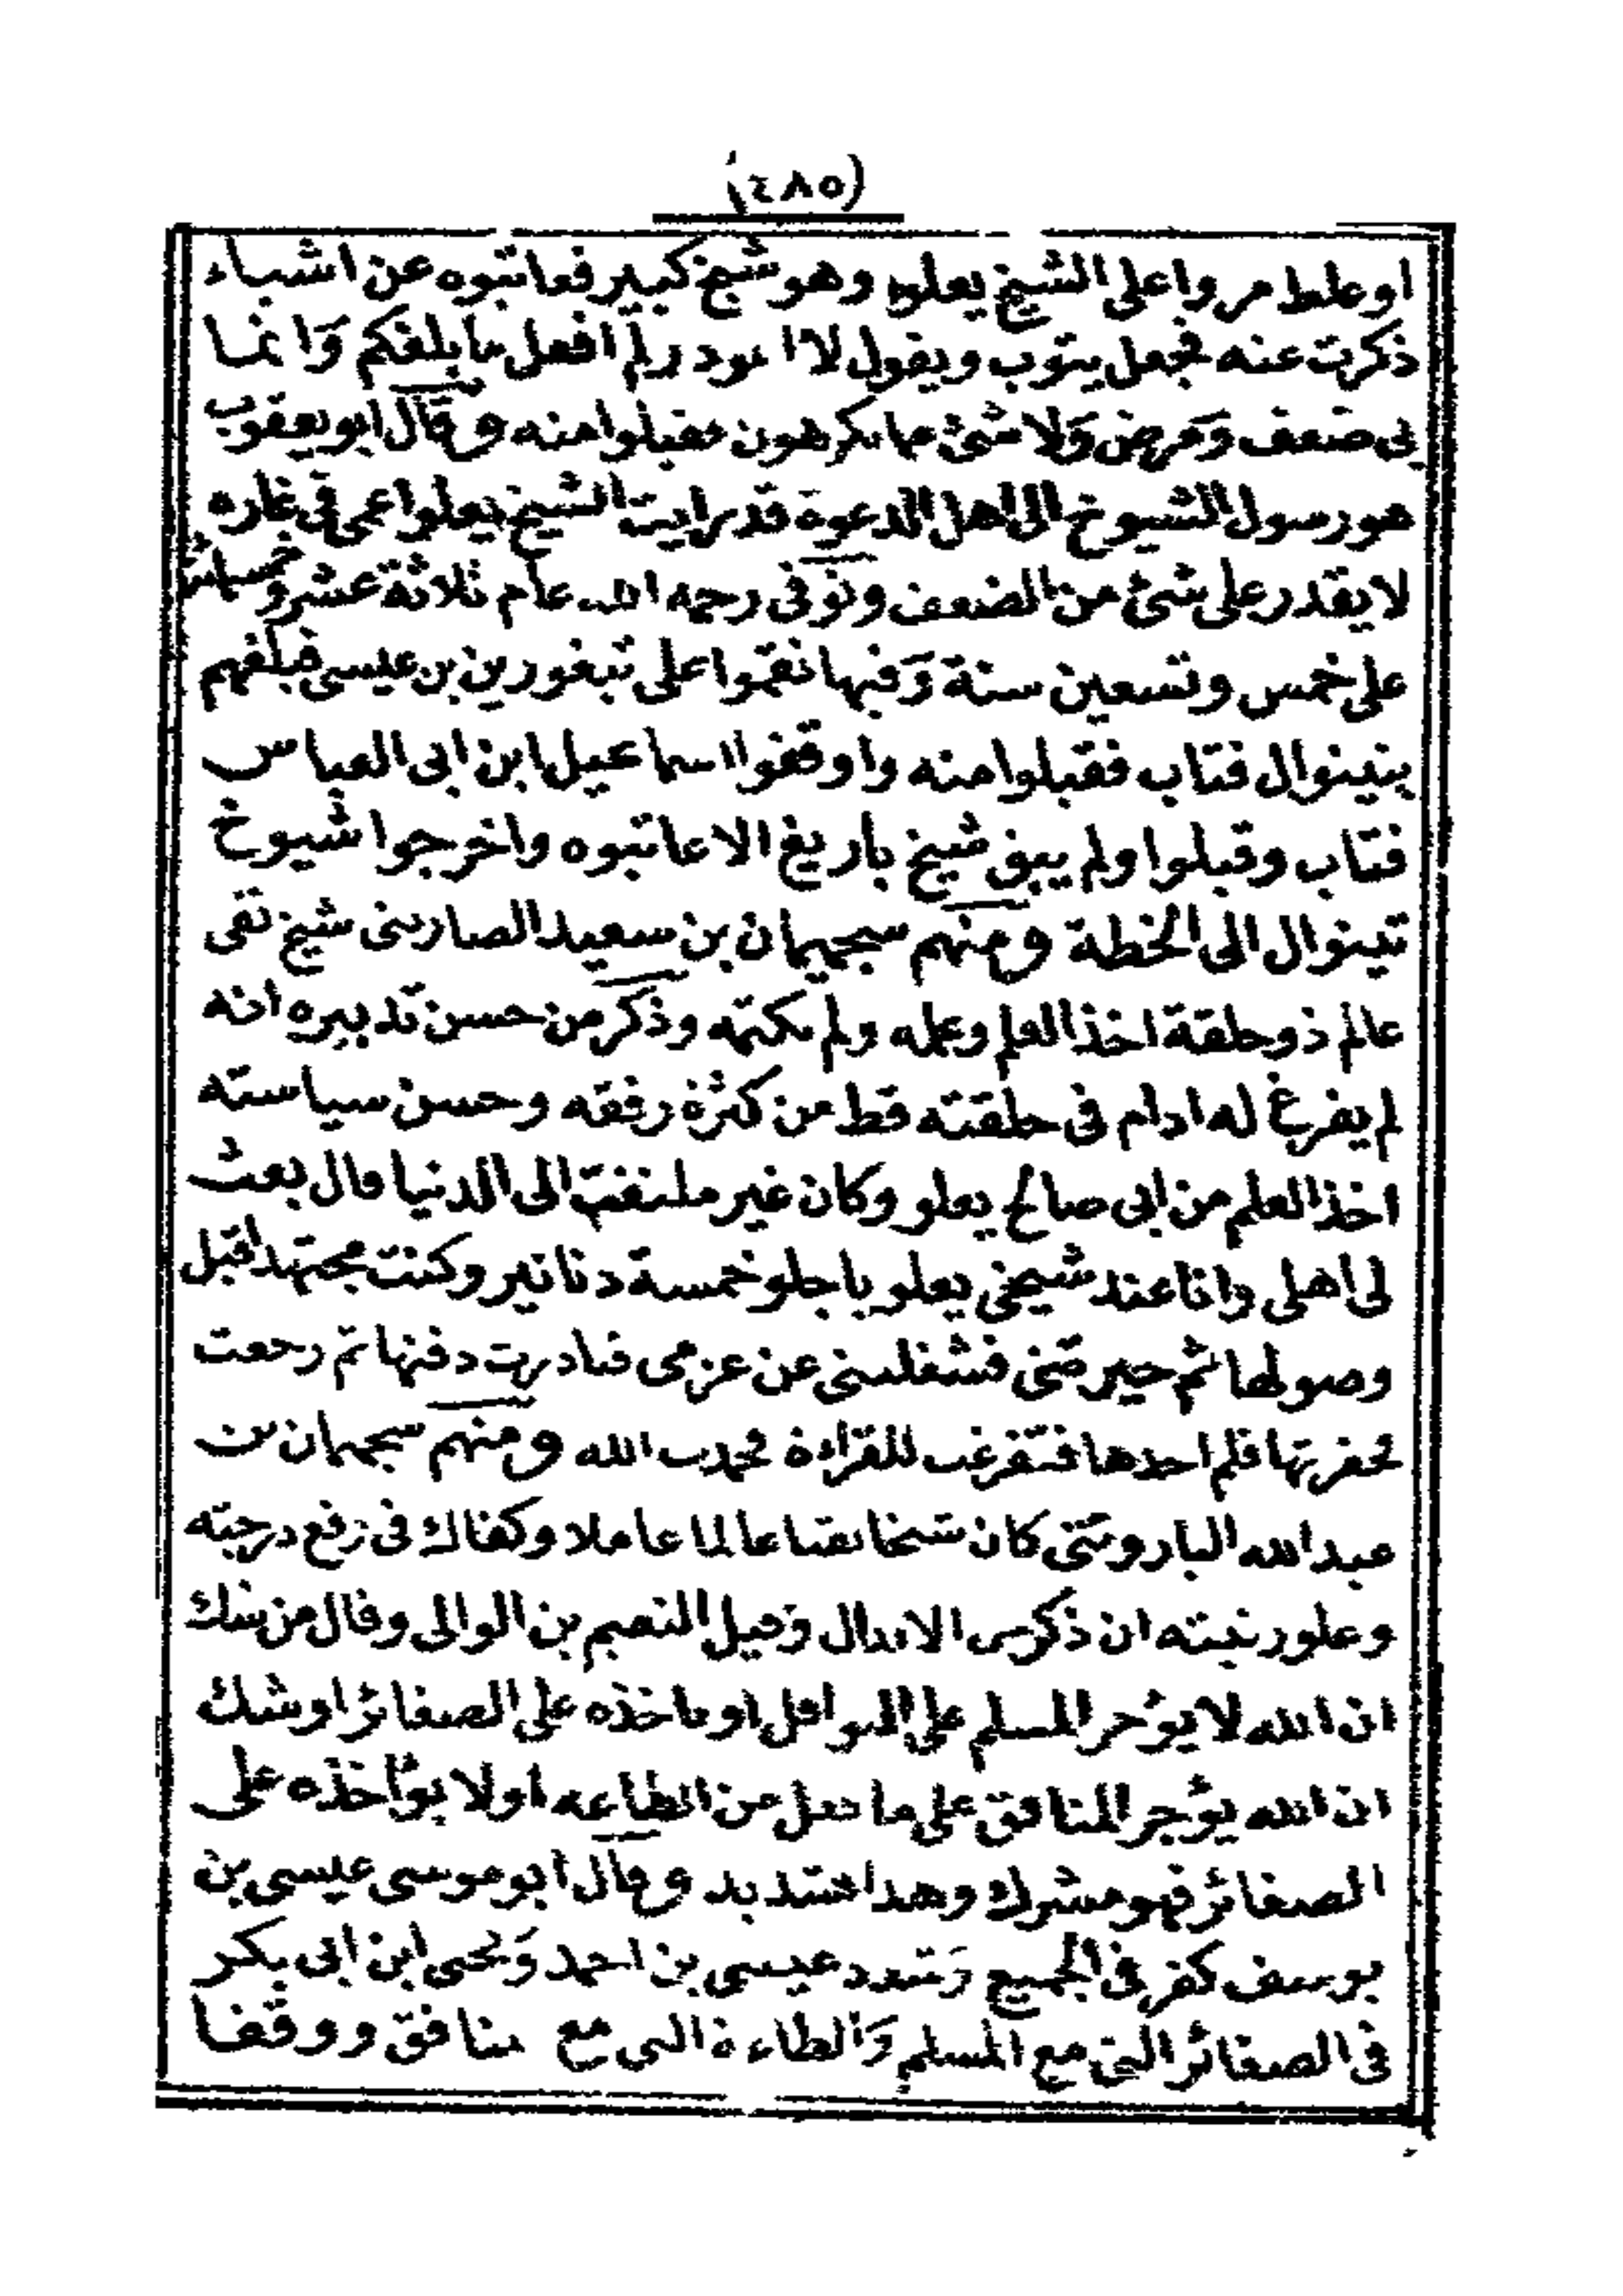 (٤٨٥)
او غلط مروا على الشيخ يعلوا وهو شيخ كبير فعاتبوه عن اشياء
ذكرت عنه فجعل يتوب ويقول لا اعود ولم افعل ما بلغكم وَانما
بى ضعف وَمرض وَلا شئ مما تكرهون فقبلوا منه وقَال ابو يعقوب
هو رسول الشيوخ الى اهل الدعوة قد رايت الشيخ يعلوا عمى فى غاره
لا يقدر على شئ من الضعف وتوفى رحمه الله عام ثلاثة عشر وخمسمائة
على خمس وتسعين سنة وَفيها نقموا على تبغورين بن عيسى فبلغهم
بتينوال فتاب فقبلوا منه واوقفوا اسماعيل ابن ابى العباس
فتاب وقبلوا ولم يبق شيخ باريغ الا عاتبوه واخرجوا شيوخ
تينوال الى الخطة ومنهم سجميمان بن سعيد الصارتى شيخ تقى
عالم ذو حلقة اخذ العلم وعمله ولم يكتمه وذكر من حسن تدبيره انه
لم يفرغ له ادام فى حلقته قط من كثرة رفقه وحسن سياسته
اخذ العلم من ابى صالح يعلو وكان غير ملتفت الى الدنيا قال بعث
لى اهلى وانا عند شيخى يعلو باجلو خمسة دنانير وكنت مجتهدا قبل
وصولها ثم حيرتنى فشغلتنى عن عزمى فبادرت دفنها ثم رجعت
لحفرتها فلم اجدها فتفرغت للقراءة فحمدت الله ومنهم سجميمان بن
عبد الله الباروتنى كان شيخا تقيا عالما عاملا وكفاك فى رفع درجته
وعلو رتبته ان ذكر من الابدال وَقيل المنصم بن الوالى وقال من شك
ان الله لا يؤجر المسلم على النوافل او ياخذه على الصغائر او شك
ان الله يؤجر المنافق على ما فعل من الطاعه او لا يؤاخذه على
الصغائر فهو مشرك وهذا تشديد وقال ابو موسى عيسى بن
يوسف كفر فى الجميع وَشدد عيسى بن احمد وَيحى ابن ابى بكر
فى الصغائر التى مع المسلم وَالطاعة التى مع منافق ووقفا